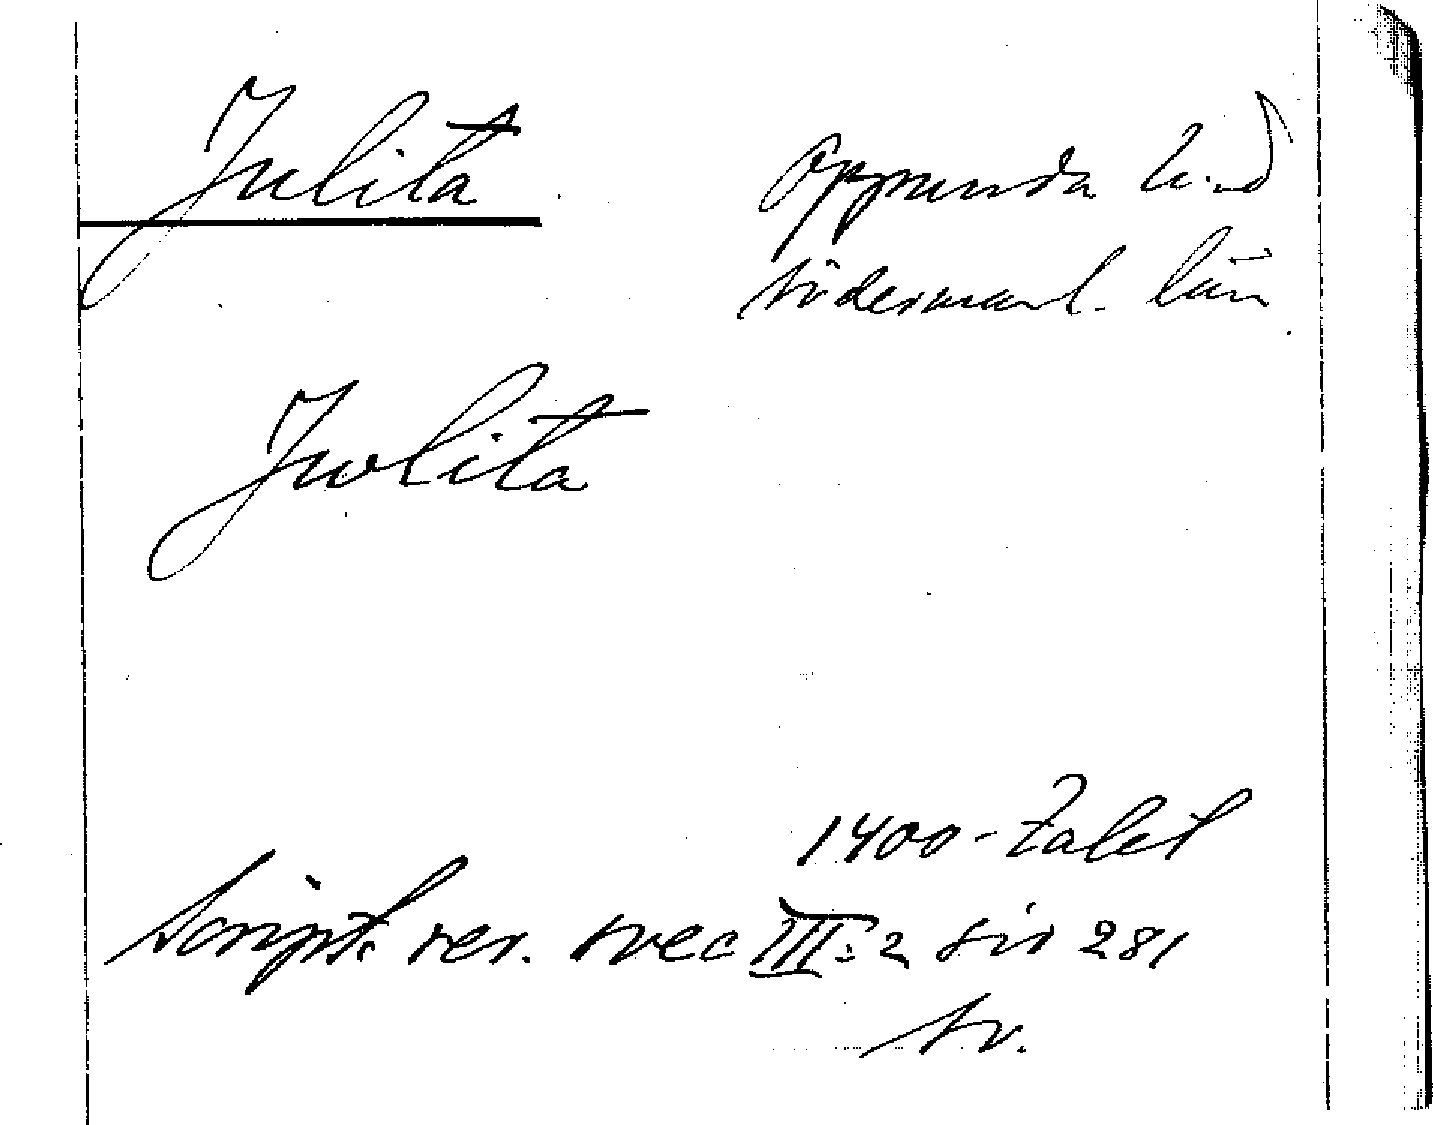 Julita Oppunda h-d
Södermanl. län
Juolita
1400-talet
Script. rer. svec III:2 sid 281
Sv.